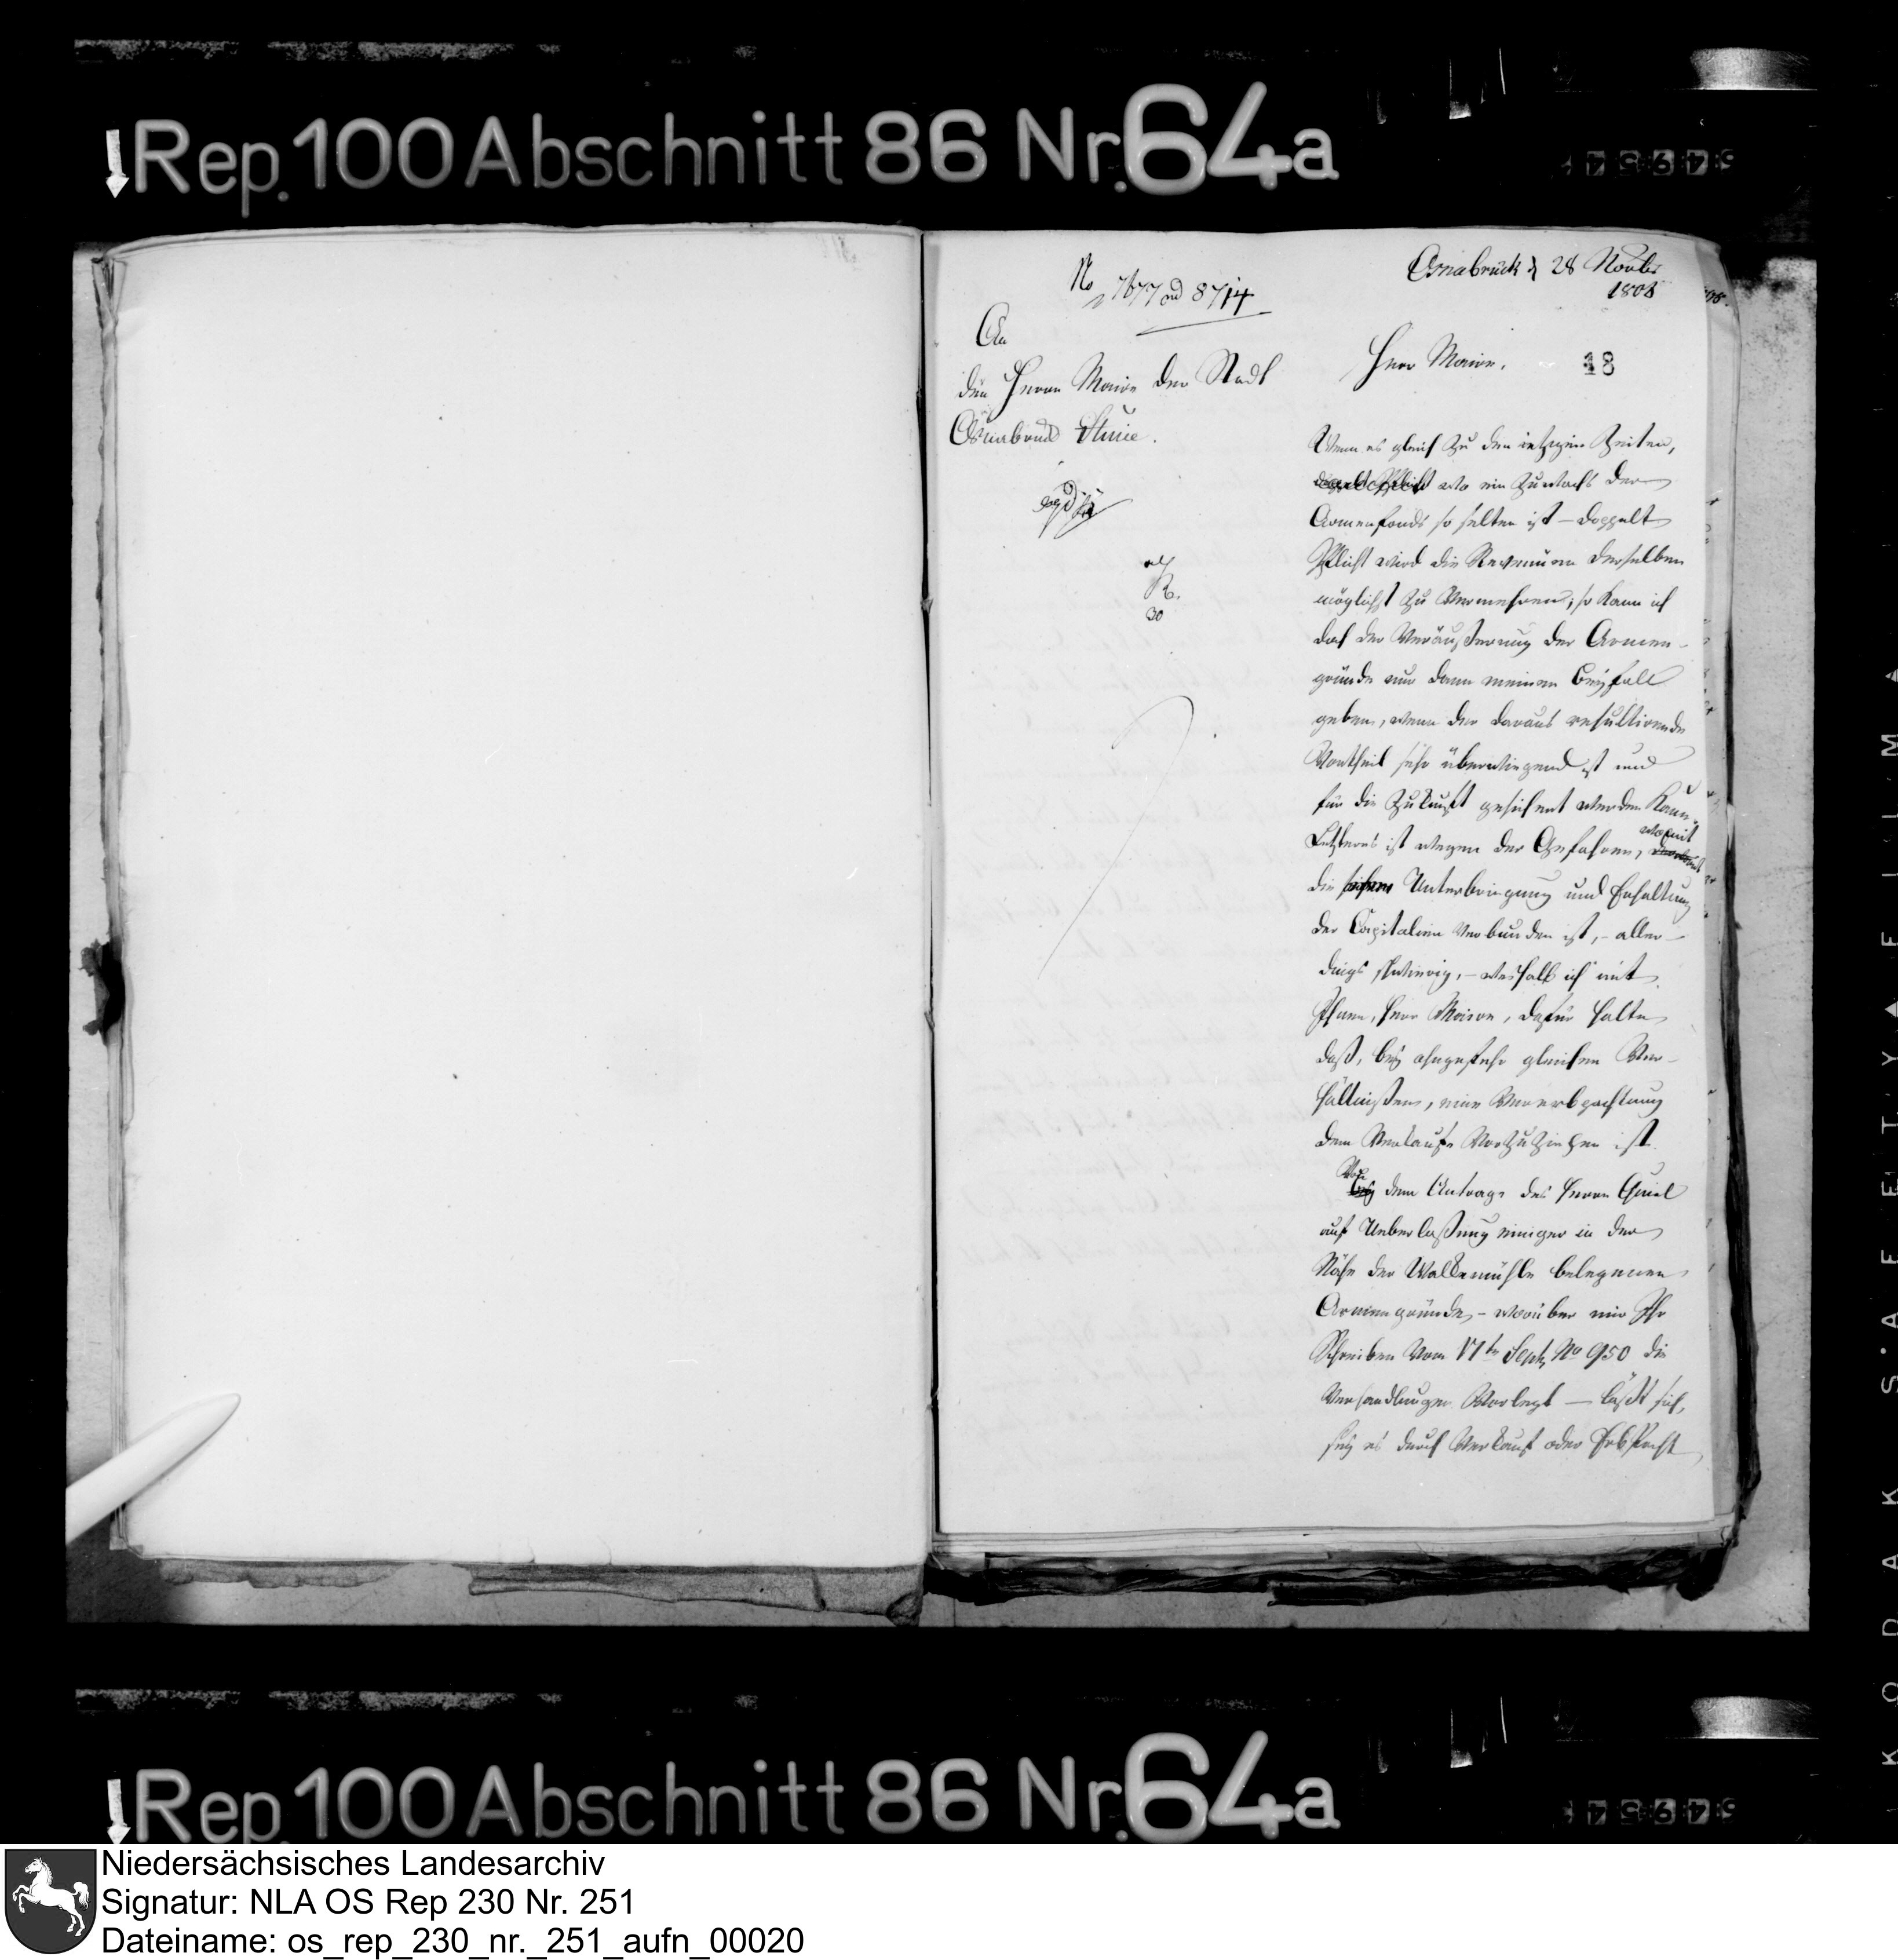 Rep. 100 Abschnitt 86 Nr. 64a
No 7677 und 8714
Osnabrück d 28 Novbr
1808
An
den Herrn Maire der Stadt
Osnabrück Stüve.
18
Herr Maire,
Wenn es gleich zu den jetzigen Zeiten,
wo ein Zuwachs der
Armenfonds so selten ist – doppelt
Pflicht wird die Revenüen derselben
möglichst zu vermehren, so kann ich
doch der Veräußerung der Armen-
gründe nur dann meinen Beyfall
geben, wenn der daraus resultirende
Vortheil sehr überwiegend ist und
für die Zukunft gesichert werden kann.
Letzteres ist wegen der Gefahren, womit
die Unterbringung und Erhaltung
der Capitalien verbunden ist, – aller-
dings schwierig, – weshalb ich mit
Ihnen, Herr Maire, dafür halte
daß, bey ohngefehr gleichen Ver-
hältnißen, eine Vererbpachtung
dem Verkaufe vorzuziehen ist.
dem Antrage des Herrn Gruel
auf Ueberlaßung einiger in der
Nähe der Walkemühle belegenen
Armengründe – worüber mir Ihr
Schreiben vom 17ten Septr No 950 die
Verhandlungen vorlegt – läßt sich,
sey es durch Verkauf oder Erbpacht
Rep. 100 Abschnitt 86 Nr. 64a
KODAK SAFETY FILM
Niedersächsisches Landesarchiv
Signatur: NLA OS Rep 230 Nr. 251
Dateiname: os_rep_230_nr._251_aufn_00020